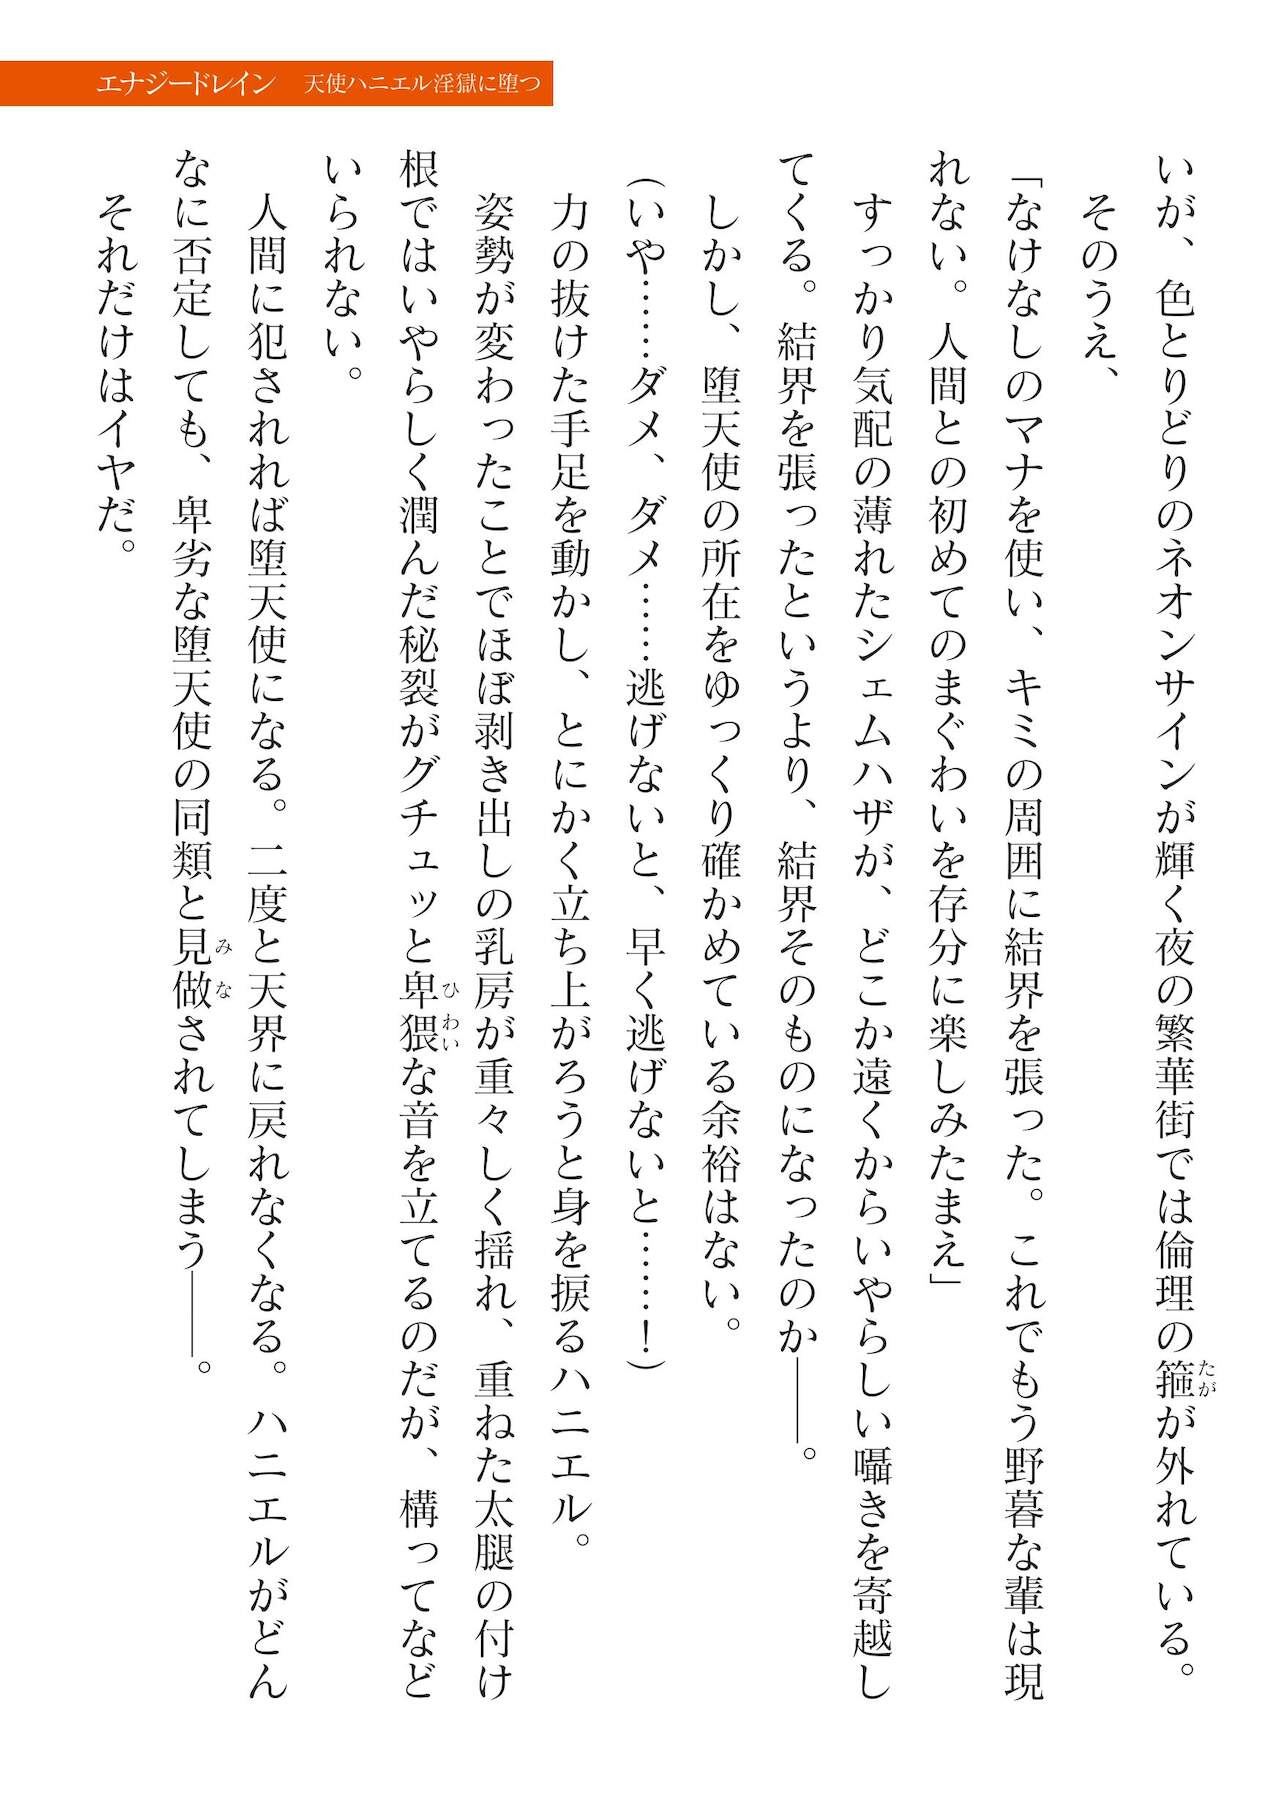 エナジードレイン　天使ハニエル淫獄に堕つ
いが、色とりどりのネオンサインが輝く夜の繁華街では倫理の箍が外れている。
そのうえ、
「なけなしのマナを使い、キミの周囲に結界を張った。これでもう野暮な輩は現
れない。人間との初めてのまぐわいを存分に楽しみたまえ」
すっかり気配の薄れたシェムハザが、どこか遠くからいやらしい囁きを寄越し
てくる。結界を張ったというより、結界そのものになったのか――。
しかし、堕天使の所在をゆっくり確かめている余裕はない。
（いや……ダメ、ダメ……逃げないと、早く逃げないと……！）
力の抜けた手足を動かし、とにかく立ち上がろうと身を捩るハニエル。
姿勢が変わったことでほぼ剥き出しの乳房が重々しく揺れ、重ねた太腿の付け
根ではいやらしく潤んだ秘裂がグチュッと卑猥な音を立てるのだが、構ってなど
いられない。
人間に犯されれば堕天使になる。二度と天界に戻れなくなる。ハニエルがどん
なに否定しても、卑劣な堕天使の同類と見做されてしまう――。
それだけはイヤだ。